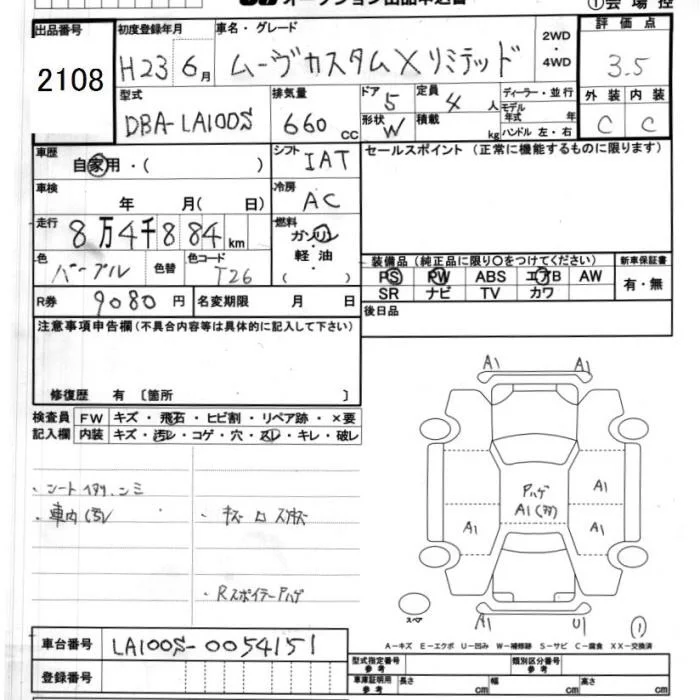 ①会場控
出品番号 初度登録年月 車名・グレード 評価点
2108 H23 6月 ムーヴカスタムXリミテッド 2WD・4WD 3.5
型式 排気量 ドア 定員 ディーラー・並行 外装 内装
DBA-LA100S 660cc 5 4人 モデル年式 年 C C
形状 W 積載 kg ハンドル 左・右
車歴 シフト セールスポイント(正常に機能するものに限ります)
自家用・( ) IAT
車検 冷房
年 月( 日) AC
走行 燃料
8万4千884km ガソリン・軽油( )
色 色替 色コード
パープル T26
装備品(純正品に限り○をつけてください) 新車保証書
PS PW ABS エアB AW 有・無
SR ナビ TV カワ
R券 9080円 名変期限 月 日
後日品
注意事項申告欄(不具合内容等は具体的に記入して下さい)
修復歴 有 〔箇所 〕
検査員 FW キズ・飛石・ヒビ割・リペア跡・×要
記入欄 内装 キズ・汚レ・コゲ・穴・スレ・キレ・破レ
A1 A1
・車内汚レ
Pハゲ
A1
A1
A1 A1
・Rスポイラーハゲ
スペア
A1 U1 (1)
車台番号 LA100S-0054151
A-キズ E-エクボ U-凹み W-補修跡 S-サビ C-腐食 XX-交換済
登録番号
型式指定番号 参考 類別区分番号 参考
車庫証明用 参考 長さ cm 幅 cm 高さ cm